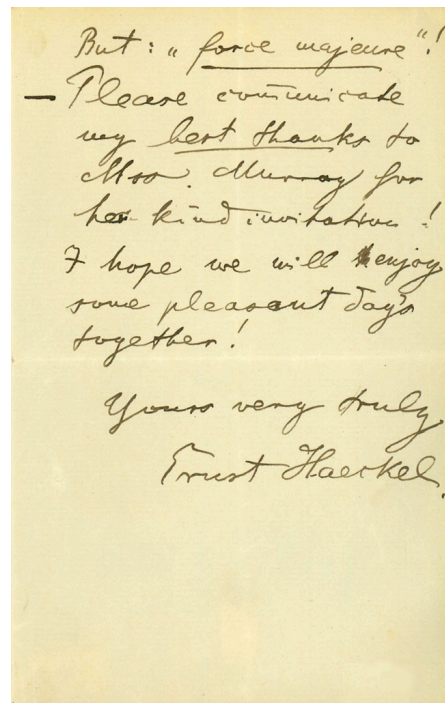 But: „force majeure"!
— Please communicate
my best thanks to
Mrs. Murray for
her kind invitation!
I hope we will enjoy
some pleasant day's
together!
Yours very truly
Ernst Haeckel.